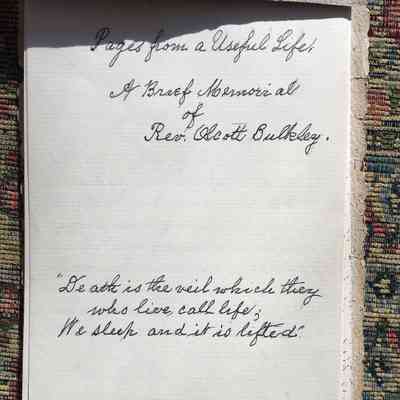 Pages from a Useful Life.
A Brief Memorial
of
Rev. Olcott Bulkley.
"Death is the veil which they
who live, call life;
We sleep and it is lifted."